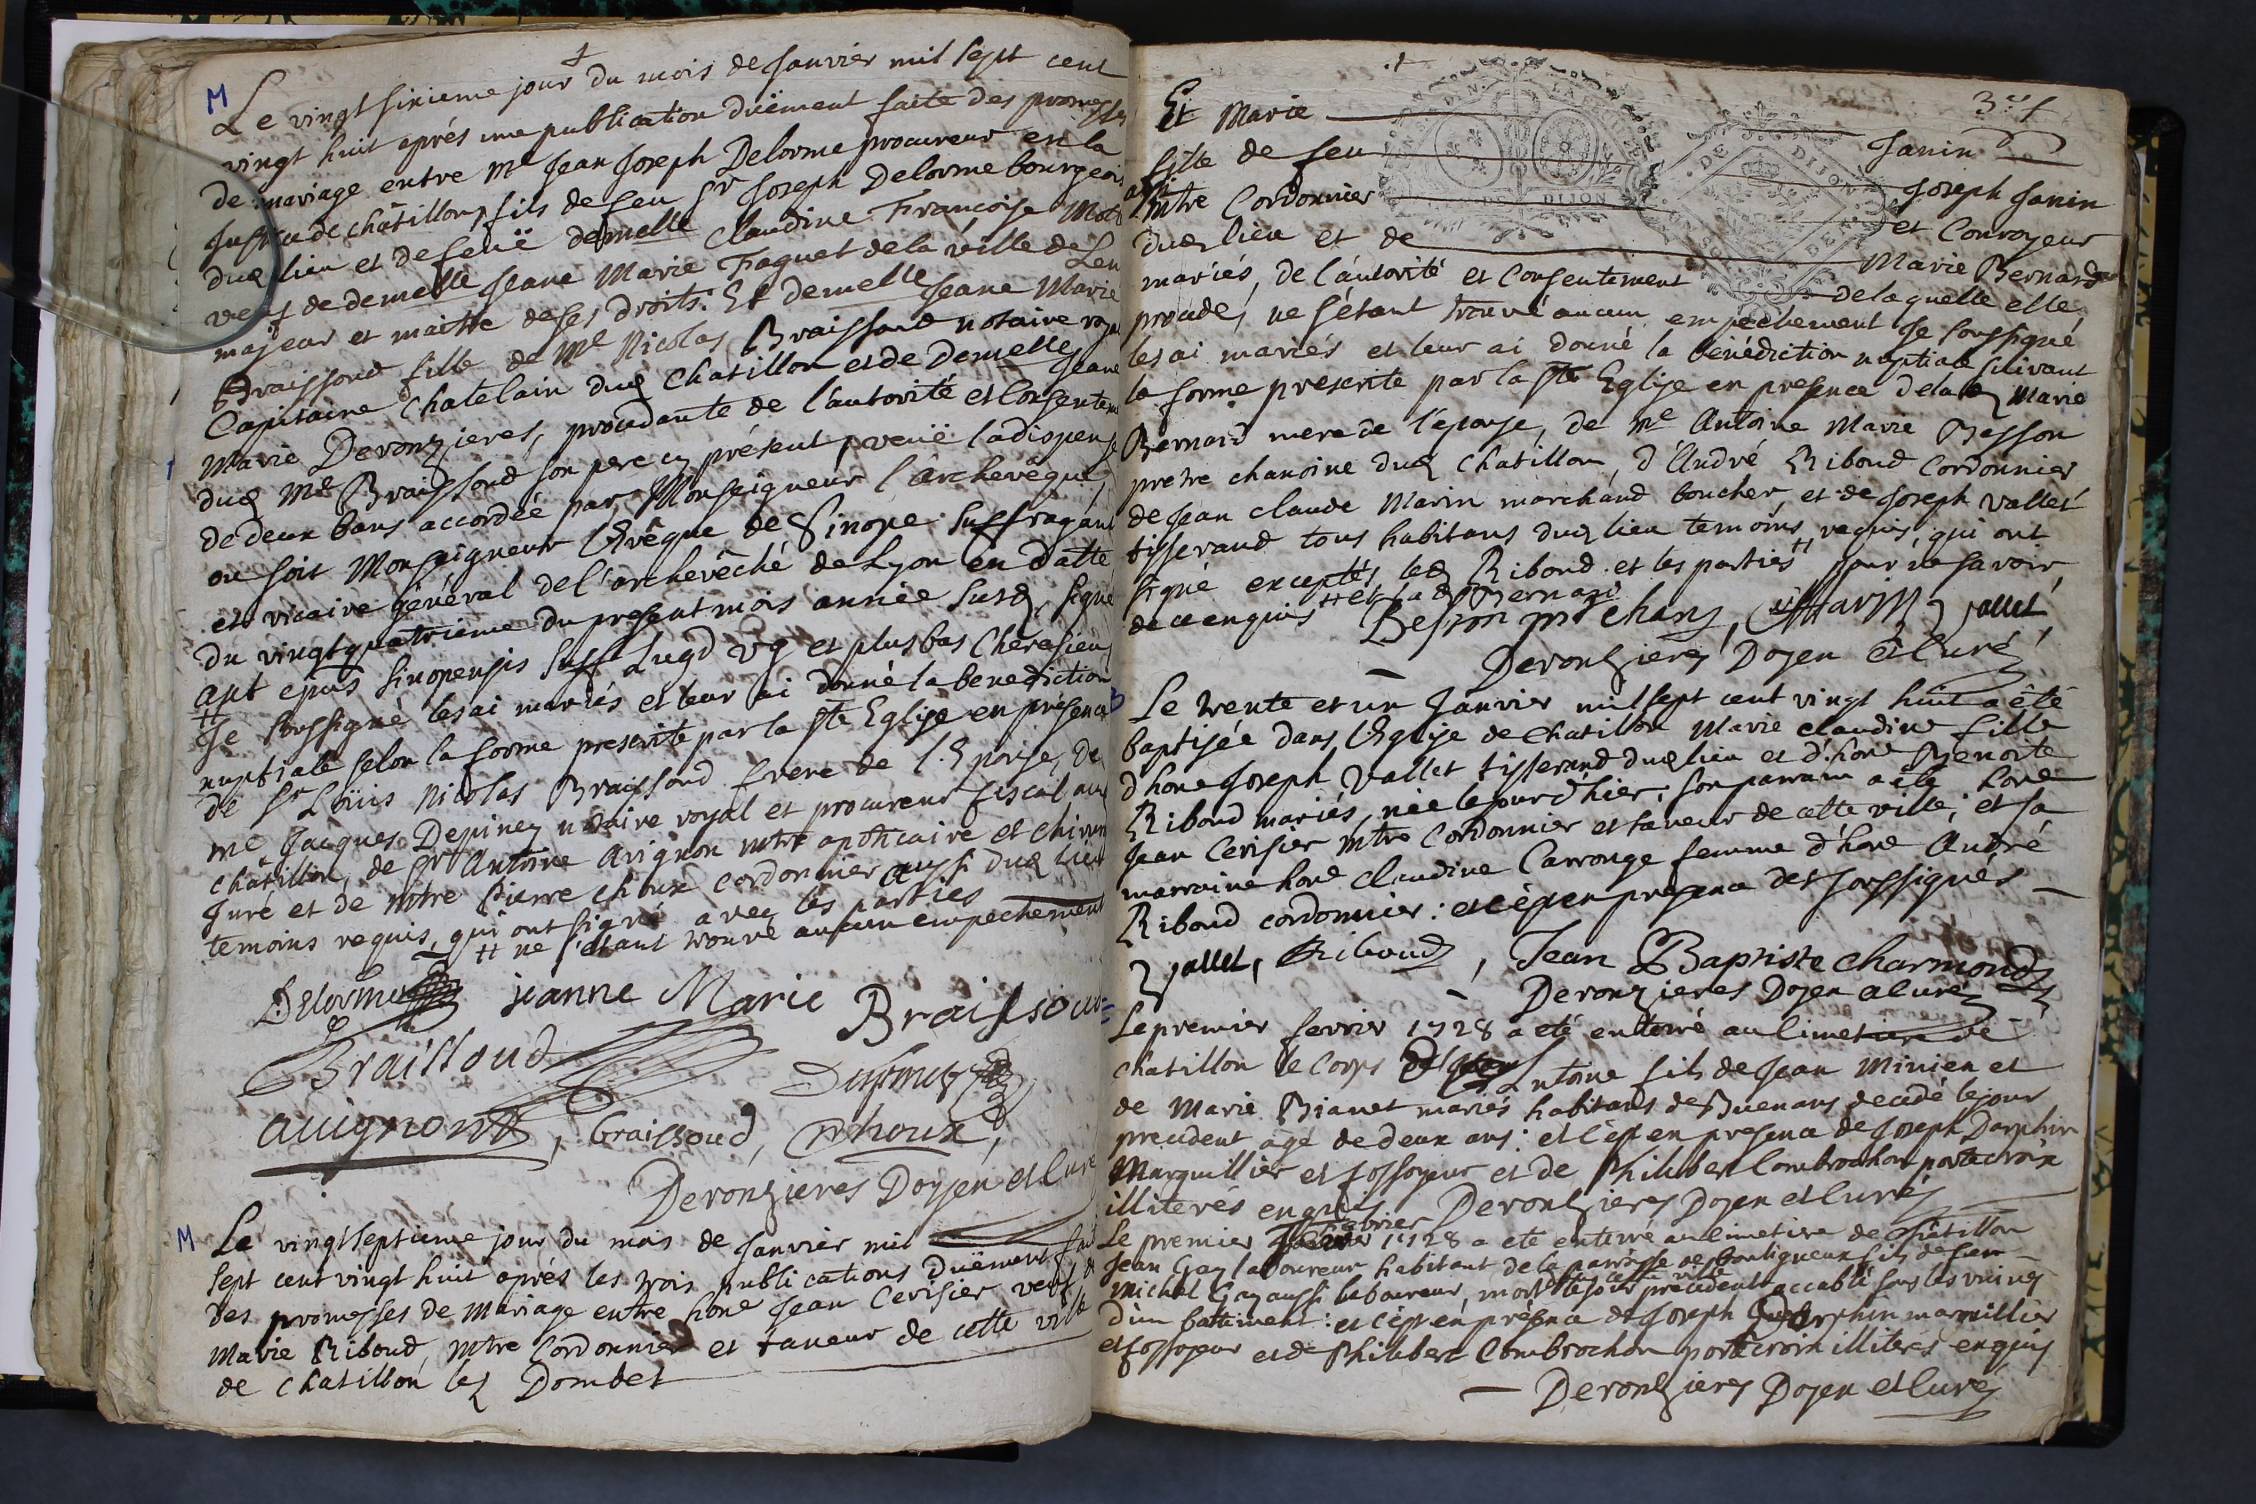 M
Le vingtsixieme jour du mois de Janvier mil sept cent
vingt huit aprés une publication düement faite des promesses
de mariage entre Me Jean Joseph Delorme procureur en la
Justice de châtillon, fils de feu Sr Joseph Delorme bourgeois
dud lieu et de feuë demelle Claudine Francoise
veuf de demelle Jeane Marie Faguet de la ville de
majeur et maitre de ses droits. Et demelle Jeane Marie
Braissoud fille de Me Nicolas Braissoud notaire royal
Capitaine Chatelain dud Chatillon et de Demelle Jeane
Marie Deronzieres, procedante de l'autorité et consentem
dud Me Braissoud son pere cy présent, veuë la dispense
de deux bans accordée par Monseigneur l'archevêque
ou soit Monseigneur l'Evêque de Sinope suffragant
et vicaire général de l'archevêché de Lyon en datte
du vingtquatrieme du present mois année susd, signé
ant epus sinopensis suff Lugd vg et plus bas
Je soussigné les ai mariés et leur ai donné la benediction
nuptiale selon la forme prescrite par la ste Eglise en présence
de Sr Loüis Nicolas Braissoud frere de l'Epouse, de
me Jacques Depiney notaire royal et procureur fiscal aud
châtillon, de Sr Antoine Avignon mtre apoticaire et chirurg
Juré et de mtre Pierre choux cordonnier aussi dud lieu
temoins requis, qui ont signé avec les parties
++ ne s'étant trouvé aucun empechement
Delorme jeanne Marie Braissoud
Braissoud
avignon, braissoud, choux,
Deronzieres Doyen et Curé
M
Le vingtseptieme jour du mois de Janvier mil
sept cent vingt huit aprés les trois publications düement
des promesses de mariage entre hone Jean Cerisier veuf de
Marie Riboud, mtre Cordonnier et taneur de cette ville
de chatillon les Dombes
Et Marie Janin
fille de feu Joseph Janin
mtre Cordonnier et Conroyeur
dud lieu et de Marie Bernard
mariés, de l'autorité et consentement de laquelle elle
procede, ne s'étant trouvé aucun empechement Je soussigné
les ai mariés et leur ai donné la bénédiction nuptiale suivant
la forme prescrite par la ste Eglise en presence de lad Marie
Bernard mere de l'épouse, de me Antoine Marie Besson
pretre chanoine dud Chatillon, d'André Riboud Cordonnier
de Jean claude Marin marchand boucher, et de Joseph Vallet
tisserand tous habitans dud lieu temoins requis, qui ont
signé exceptés led Riboud et les parties ++ pour ne savoir
de ce enquis ++ et lad Bernard
Besson ptre chane, Marin, vallet,
Deronzieres Doyen et Curé
Le trente et un Janvier mil sept cent vingt huit a été
baptisée dans l'Eglise de Chatillon Marie claudine fille
d'hone Joseph Vallet tisserand dud lieu et d'hone Benoite
Riboud mariés, née le jour d'hier; son parrain a été hone
Jean Cerisier mtre Cordonnier et taneur de cette ville; et sa
marraine hone claudine Carronge femme d'hone André
Riboud cordonnier: et c'est en presence des soussignés
vallet, Riboud, Jean Baptiste charmond
Deronzieres Doyen et curé
Le premier fevrier 1728 a eté enterré au Cimetiere de
chatillon le Corps d'Antoine fils de Jean Minien et
de Marie Bianet mariés habitans de Buenans decédé le jour
precedent agé de deux ans: et c'est en presence de Joseph Darphin
Marguillier et fossoyeur et de Philibert Combrochon porte croix
illiterés enquis Deronzieres Doyen et Curé
Le premier fevrier 1728 a eté enterré au cimetiere de Châtillon
Jean Gay laboureur habitant de la parroisse de fils de feu
michel Gay aussi laboureur, mort dans cette ville le jour précedent accablé sous les ruines
d'un battiment: et c'est en présence de Joseph Darphin marguillier
et fossoyeur et de Philibert Combrochon porte croix illiterés enquis
Deronzieres Doyen et Curé